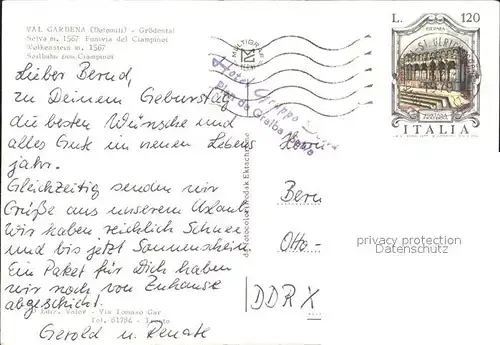 VAL GARDENA (Dolomiti) - Grödental
Selva m. 1567 Funivia del Ciampinoi
Wolkenstein m. 1567
Seilbahn zum Ciampinoi
Lieber Bernd,
zu Deinem Geburtstag
die besten Wünsche und
alles Gute im neuen Lebens
jahr.
Gleichzeitig senden wir
Grüße aus unserem Urlaub.
Wir haben reichlich Schnee
und bis jetzt Sonnenschein.
Ein Paket für Dich haben
wir noch von Zuhause
abgeschickt.
Gerold u. Renate
© Ediz. Valer - Via Tomaso Gar
Tel. 81794 - Trento
da fotocolor Kodak Ektachrome
MULTIGRAF
Hotel Gruppo
Plan de Gralba
L. 120
ITALIA
Herrn
Bern
Otto-
DDR X
privacy protection
Datenschutz